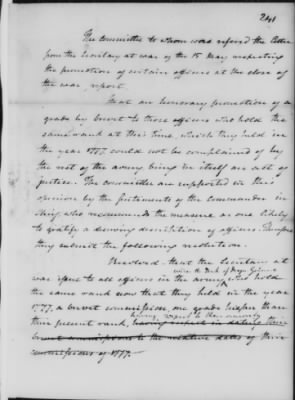 241
The committee to whom was referred the letter
from the Secretary at war of the 15 May respecting
the promotion of certain officers at the close of
the war, report.
That an honorary promotion of a
grade by brevet to those officers who hold the
same rank at this time, which they held in
the year 1777 could not be complained of by
the rest of the army being in itself an act of
justice. The committee are supported in this
opinion by the sentiments of the commander in
chief, who recommends the measure as one likely
to gratify a deserving description of officers. Therefore
they submit the following resolution.
Resolved that the Secretary at
under the rank of Major General
war issue to all officers in the army, who hold
the same rank now that they held in the year
1777, a brevet commission one grade higher than
having regard to their seniority
their present rank, having respect in dating their
brevet commissions to the relative dates of their
commissions of 1777.